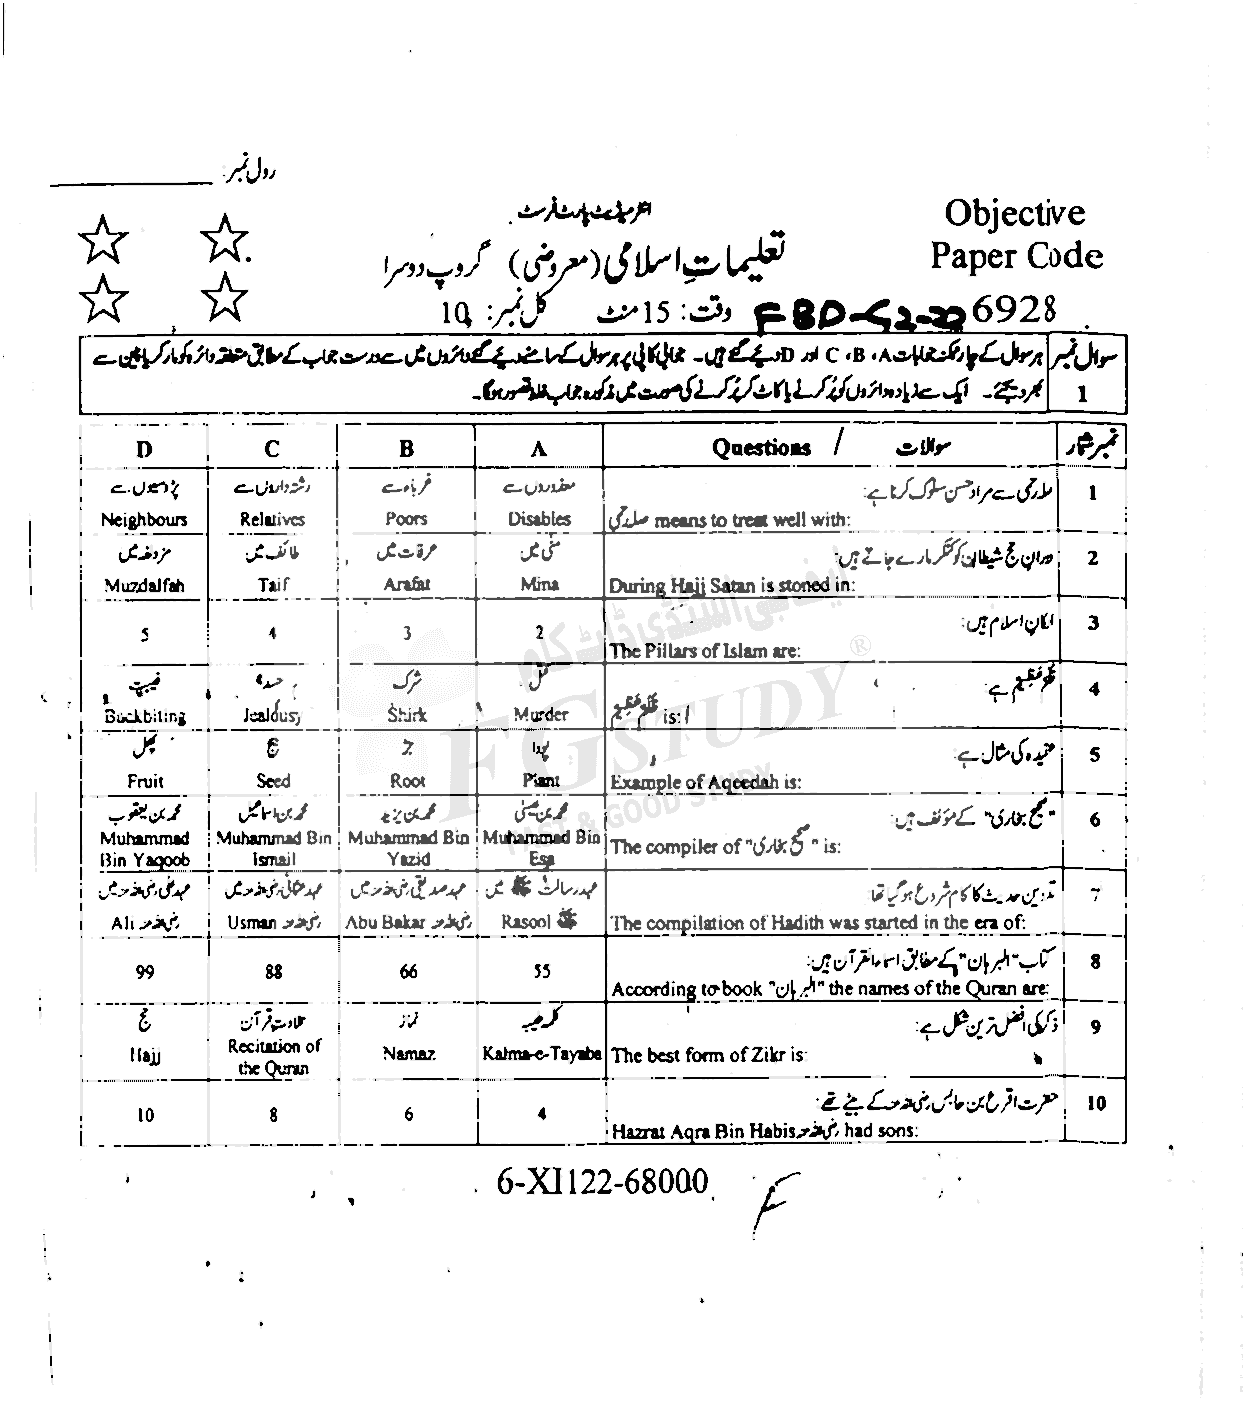 رول نمبر:
انٹرمیڈیٹ پارٹ فرسٹ
Objective
Paper Code
6928
تعلیماتِ اسلامی (معروضی) گروپ دوسرا
وقت: 15 منٹ کل نمبر: 10
FBD-G2-22
سوال نمبر 1
ہر سوال کے چار ممکنہ جوابات A، B، C اور D دیئے گئے ہیں۔ جوابی کاپی پر ہر سوال کے سامنے دیئے گئے دائروں میں سے درست جواب کے مطابق متعلقہ دائرہ کو مارکر یا پین سے
بھر دیجئے۔ ایک سے زیادہ دائروں کو پُر کرنے یا کاٹ کر پُر کرنے کی صورت میں مذکورہ جواب غلط تصور ہوگا۔
نمبر شمار سوالات / Questions A B C D
1 صلہ رحمی سے مراد حسن سلوک کرنا ہے: معذوروں سے غرباء سے رشتہ داروں سے پڑوسیوں سے
صلہ رحمی means to treat well with: Disables Poors Relatives Neighbours
2 دوران حج شیطان کو کنکر مارے جاتے ہیں: منی میں عرفات میں طائف میں مزدلفہ میں
During Hajj Satan is stoned in: Mina Arafat Taif Muzdalfah
3 ارکان اسلام ہیں:
The Pillars of Islam are: 2 3 4 5
4 ظُلْمٌ عَظِیْمٌ ہے: قتل شرک حسد غیبت
ظُلْمٌ عَظِیْمٌ is: Murder Shirk Jealousy Buckbiting
5 عقیدہ کی مثال ہے: پودا جڑ بیج پھل
Example of Aqeedah is: Plant Root Seed Fruit
6 "صحیح بخاری" کے مؤلف ہیں: محمد بن عیسٰی محمد بن یزید محمد بن اسماعیل محمد بن یعقوب
The compiler of "صحیح بخاری" is: Muhammad Bin Esa Muhammad Bin Yazid Muhammad Bin Ismail Muhammad Bin Yaqoob
7 تدوین حدیث کا کام شروع ہو گیا تھا عہد رسالت ﷺ میں عہد صدیقی رضی اللہ عنہ میں عہد عثمانی رضی اللہ عنہ میں عہد علی رضی اللہ عنہ میں
The compilation of Hadith was started in the era of: Rasool ﷺ Abu Bakar رضی اللہ عنہ Usman رضی اللہ عنہ Ali رضی اللہ عنہ
8 کتاب "البرہان" کے مطابق اسماء القرآن ہیں:
According to book "البرہان" the names of the Quran are: 55 66 88 99
9 ذکر کی افضل ترین شکل ہے: کلمہ طیبہ نماز تلاوت قرآن حج
The best form of Zikr is: Kalma-e-Tayaba Namaz Recitation of the Quran Hajj
10 حضرت اقرع بن حابس رضی اللہ عنہ کے بیٹے تھے:
Hazrat Aqra Bin Habis رضی اللہ عنہ had sons: 4 6 8 10
6-XI122-68000
ایف جی اسٹڈی ڈاٹ کام
FGSTUDY®
& GOOD STUDY